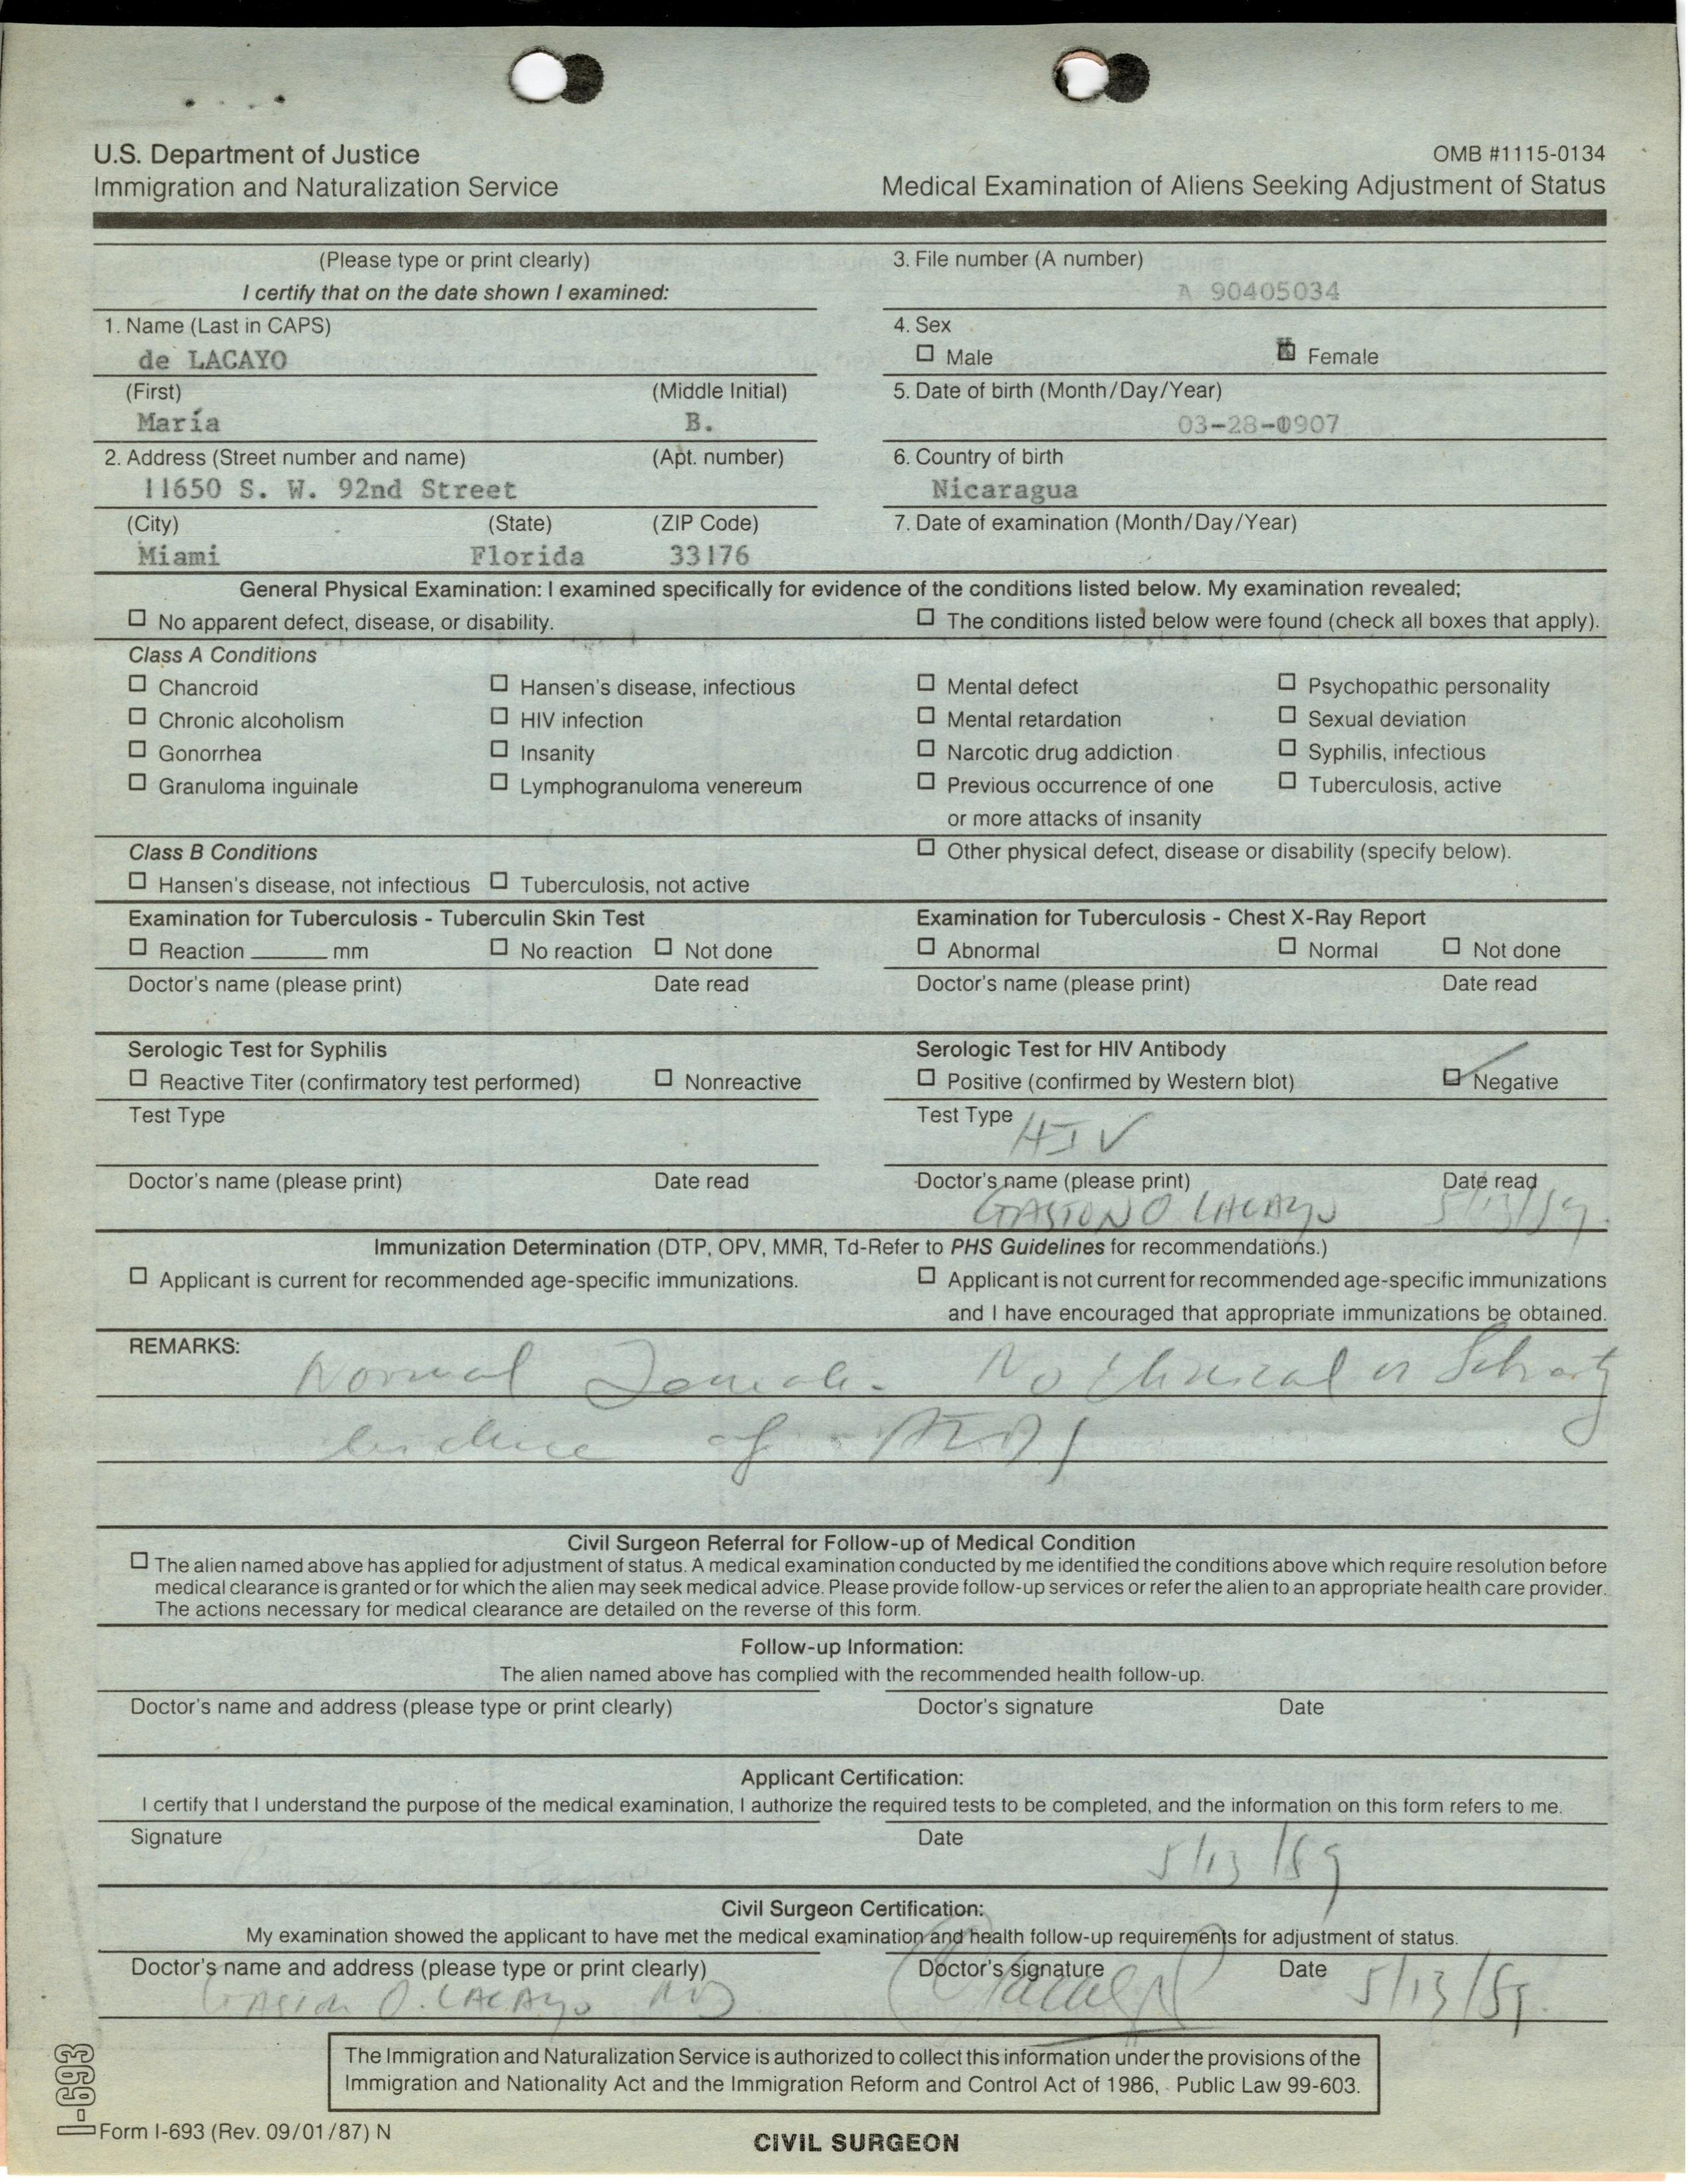 U.S. Department of Justice
Immigration and Naturalization Service
OMB #1115-0134
Medical Examination of Aliens Seeking Adjustment of Status
(Please type or print clearly)
I certify that on the date shown I examined:
3. File number (A number)
A 90405034
1. Name (Last in CAPS)
de LACAYO
4. Sex
☐ Male ☒ Female
(First) (Middle Initial)
María B.
5. Date of birth (Month/Day/Year)
03-28-0907
2. Address (Street number and name) (Apt. number)
11650 S. W. 92nd Street
6. Country of birth
Nicaragua
(City) (State) (ZIP Code)
Miami Florida 33176
7. Date of examination (Month/Day/Year)
General Physical Examination: I examined specifically for evidence of the conditions listed below. My examination revealed;
☐ No apparent defect, disease, or disability. ☐ The conditions listed below were found (check all boxes that apply).
Class A Conditions
☐ Chancroid ☐ Hansen's disease, infectious ☐ Mental defect ☐ Psychopathic personality
☐ Chronic alcoholism ☐ HIV infection ☐ Mental retardation ☐ Sexual deviation
☐ Gonorrhea ☐ Insanity ☐ Narcotic drug addiction ☐ Syphilis, infectious
☐ Granuloma inguinale ☐ Lymphogranuloma venereum ☐ Previous occurrence of one ☐ Tuberculosis, active
or more attacks of insanity
Class B Conditions ☐ Other physical defect, disease or disability (specify below).
☐ Hansen's disease, not infectious ☐ Tuberculosis, not active
Examination for Tuberculosis - Tuberculin Skin Test
☐ Reaction ______ mm ☐ No reaction ☐ Not done
Doctor's name (please print) Date read
Examination for Tuberculosis - Chest X-Ray Report
☐ Abnormal ☐ Normal ☐ Not done
Doctor's name (please print) Date read
Serologic Test for Syphilis
☐ Reactive Titer (confirmatory test performed) ☐ Nonreactive
Test Type
Doctor's name (please print) Date read
Serologic Test for HIV Antibody
☐ Positive (confirmed by Western blot) ☑ Negative
Test Type HIV
Doctor's name (please print) Date read
GASTON O LACAYO 5/13/89.
Immunization Determination (DTP, OPV, MMR, Td-Refer to PHS Guidelines for recommendations.)
☐ Applicant is current for recommended age-specific immunizations. ☐ Applicant is not current for recommended age-specific immunizations
and I have encouraged that appropriate immunizations be obtained.
REMARKS:
Normal Female. No Clinical or
evidence of AIDS
Civil Surgeon Referral for Follow-up of Medical Condition
☐ The alien named above has applied for adjustment of status. A medical examination conducted by me identified the conditions above which require resolution before
medical clearance is granted or for which the alien may seek medical advice. Please provide follow-up services or refer the alien to an appropriate health care provider.
The actions necessary for medical clearance are detailed on the reverse of this form.
Follow-up Information:
The alien named above has complied with the recommended health follow-up.
Doctor's name and address (please type or print clearly) Doctor's signature Date
Applicant Certification:
I certify that I understand the purpose of the medical examination, I authorize the required tests to be completed, and the information on this form refers to me.
Signature Date
5/13/89
Civil Surgeon Certification:
My examination showed the applicant to have met the medical examination and health follow-up requirements for adjustment of status.
Doctor's name and address (please type or print clearly) Doctor's signature Date
Gaston O. LACAYO MD OLacayo 5/13/89.
The Immigration and Naturalization Service is authorized to collect this information under the provisions of the
Immigration and Nationality Act and the Immigration Reform and Control Act of 1986, Public Law 99-603.
I-693
Form I-693 (Rev. 09/01/87) N
CIVIL SURGEON